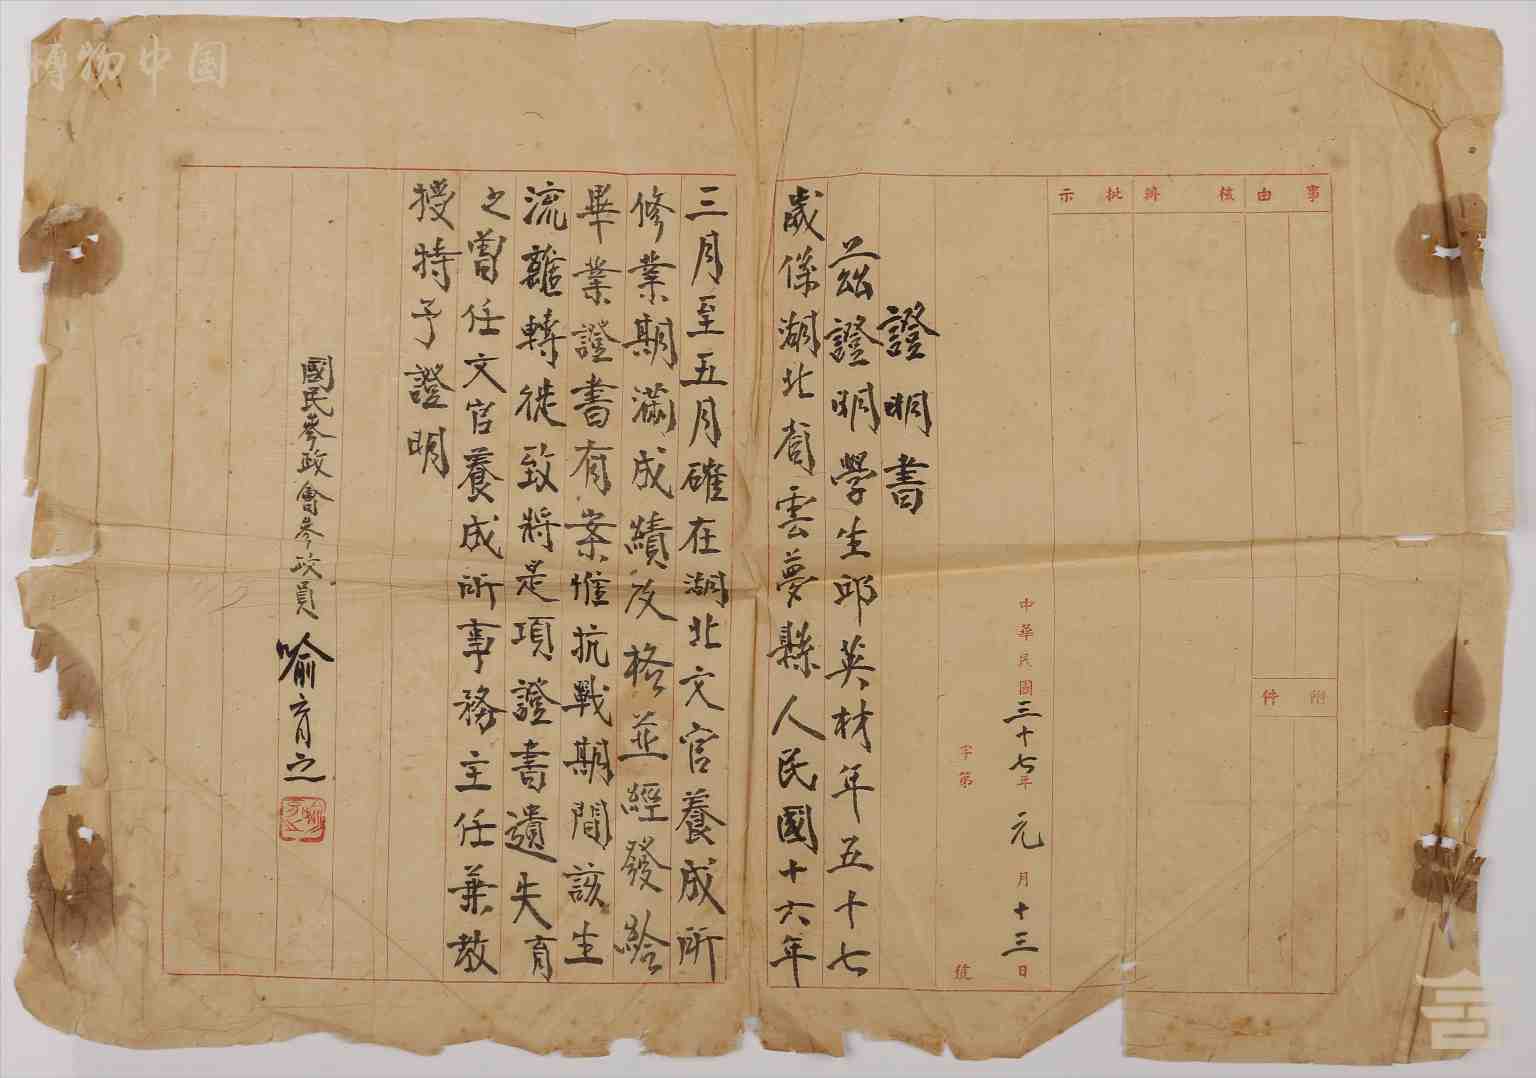 博物中国
事由
核辦
批示
附件
中華民國三十七年元月十三日
字第 號
證明書
茲證明學生邱英材年五十七
歲係湖北省雲夢縣人民國十六年
三月至五月確在湖北文官養成所
修業期滿成績及格並經發給
畢業證書有案惟抗戰期間該生
流離轉徙致將是項證書遺失育
之曾任文官養成所事務主任兼教
授特予證明
國民參政會參政員 喻育之
喻育之